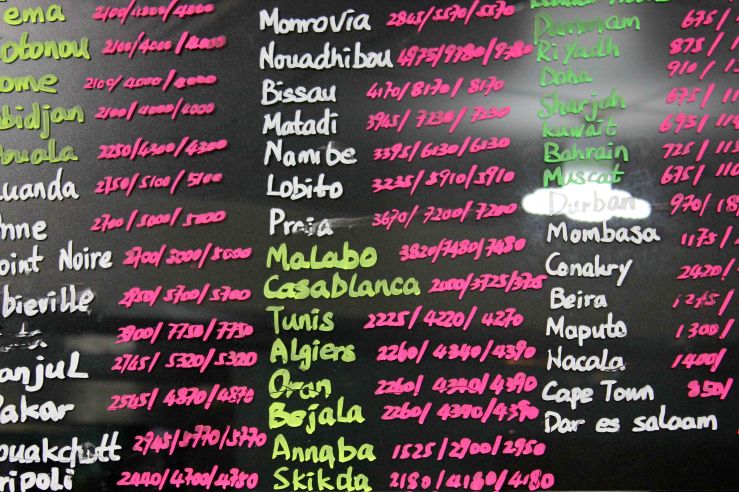 ema 2100/4000/4000
otonou 2100/4000/4000
ome 2100/4000/4000
bidjan 2100/4000/4000
ouala 2250/4300/4300
uanda 2750/5100/5100
hne 2700/5000/5200
oint Noire 2700/5000/5000
bieville 2950/5700/5700
3900/7750/7750
anjul 2745/5320/5320
akar 2545/4870/4870
ouakchott 2945/5770/5770
ripoli 2440/4700/4750
Monrovia 2845/5570/5570
Nouadhibou 4975/9780/9780
Bissau 4170/8170/8170
Matadi 3945/7230/7230
Namibe 3395/6130/6130
Lobito 3235/5910/5910
Praia 3670/7200/7200
Malabo 3820/7480/7480
Casablanca 2000/3725/3725
Tunis 2225/4220/4270
Algiers 2260/4340/4390
Oran 2260/4340/4390
Bejala 2260/4340/4390
Annaba 1525/2900/2950
Skikda 2180/4160/4180
Dammam 675/
Riyadh 875/1
Doha 910/1
Sharjah 675/11
Kuwait 695/11
Bahrain 725/115
Muscat 675/110
Durban 970/18
Mombasa 1175/2
Conakry 2420/
Beira 1275/
Maputo 1300/
Nacala 1400/
Cape Town 850/
Dar es salaam